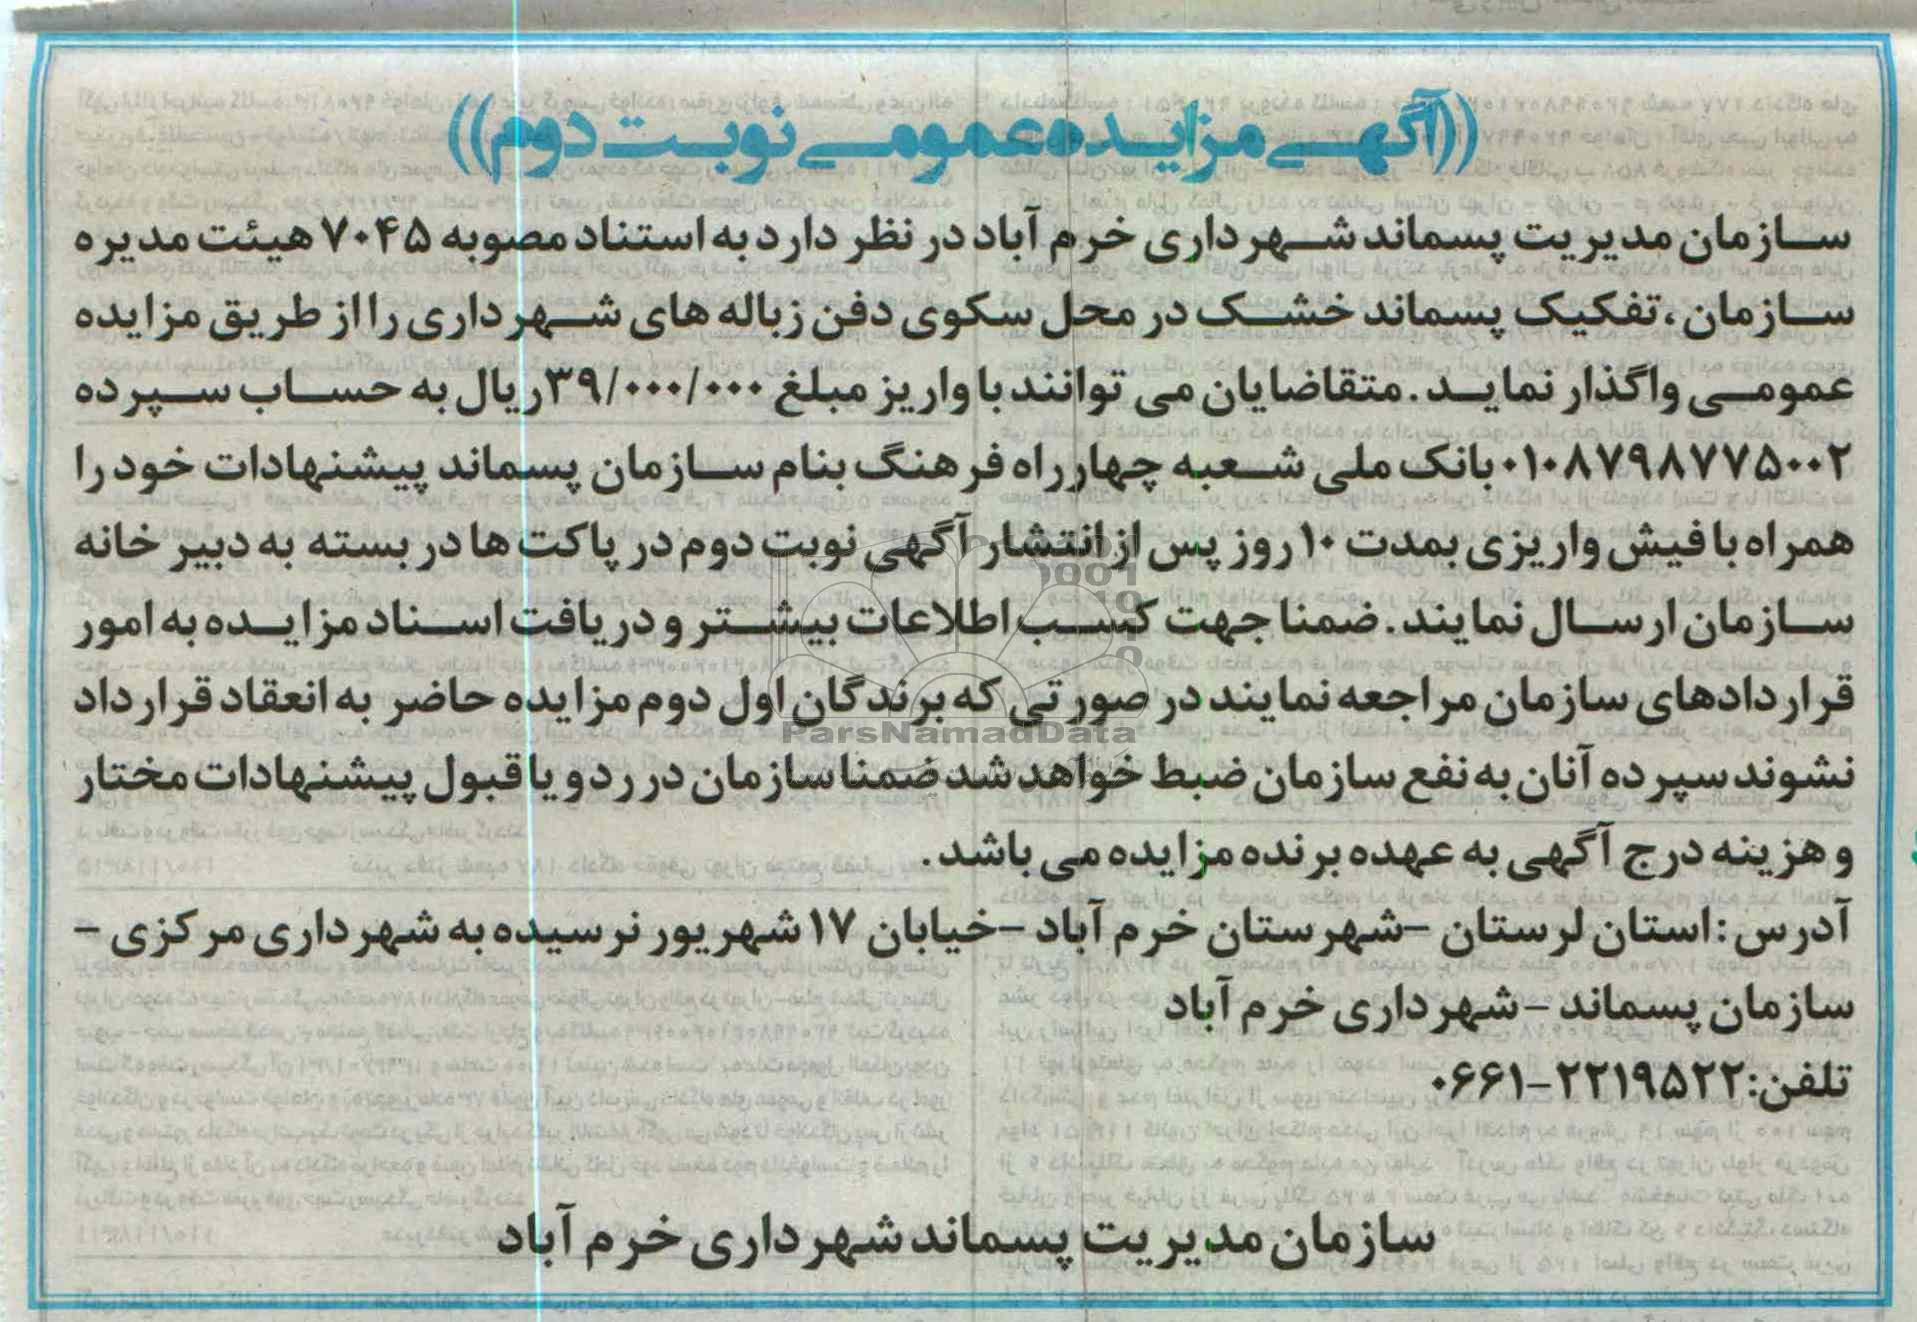 ((آگهی مزایده عمومی نوبت دوم))
سازمان مدیریت پسماند شهرداری خرم آباد در نظر دارد به استناد مصوبه ۷۰۴۵ هیئت مدیره
سازمان، تفکیک پسماند خشک در محل سکوی دفن زباله های شهرداری را از طریق مزایده
عمومی واگذار نماید. متقاضایان می توانند با واریز مبلغ ۳۹/۰۰۰/۰۰۰ ریال به حساب سپرده
۰۱۰۸۷۹۸۷۷۵۰۰۲ بانک ملی شعبه چهارراه فرهنگ بنام سازمان پسماند پیشنهادات خود را
همراه با فیش واریزی بمدت ۱۰ روز پس از انتشار آگهی نوبت دوم در پاکت ها در بسته به دبیر خانه
سازمان ارسال نمایند. ضمنا جهت کسب اطلاعات بیشتر و دریافت اسناد مزایده به امور
قراردادهای سازمان مراجعه نمایند در صورتی که برندگان اول دوم مزایده حاضر به انعقاد قرارداد
نشوند سپرده آنان به نفع سازمان ضبط خواهد شد ضمنا سازمان در رد و یا قبول پیشنهادات مختار
و هزینه درج آگهی به عهده برنده مزایده می باشد.
آدرس: استان لرستان -شهرستان خرم آباد -خیابان ۱۷ شهریور نرسیده به شهرداری مرکزی -
سازمان پسماند -شهرداری خرم آباد
تلفن: ۲۲۱۹۵۲۲-۰۶۶۱
سازمان مدیریت پسماند شهرداری خرم آباد
ParsNamadData